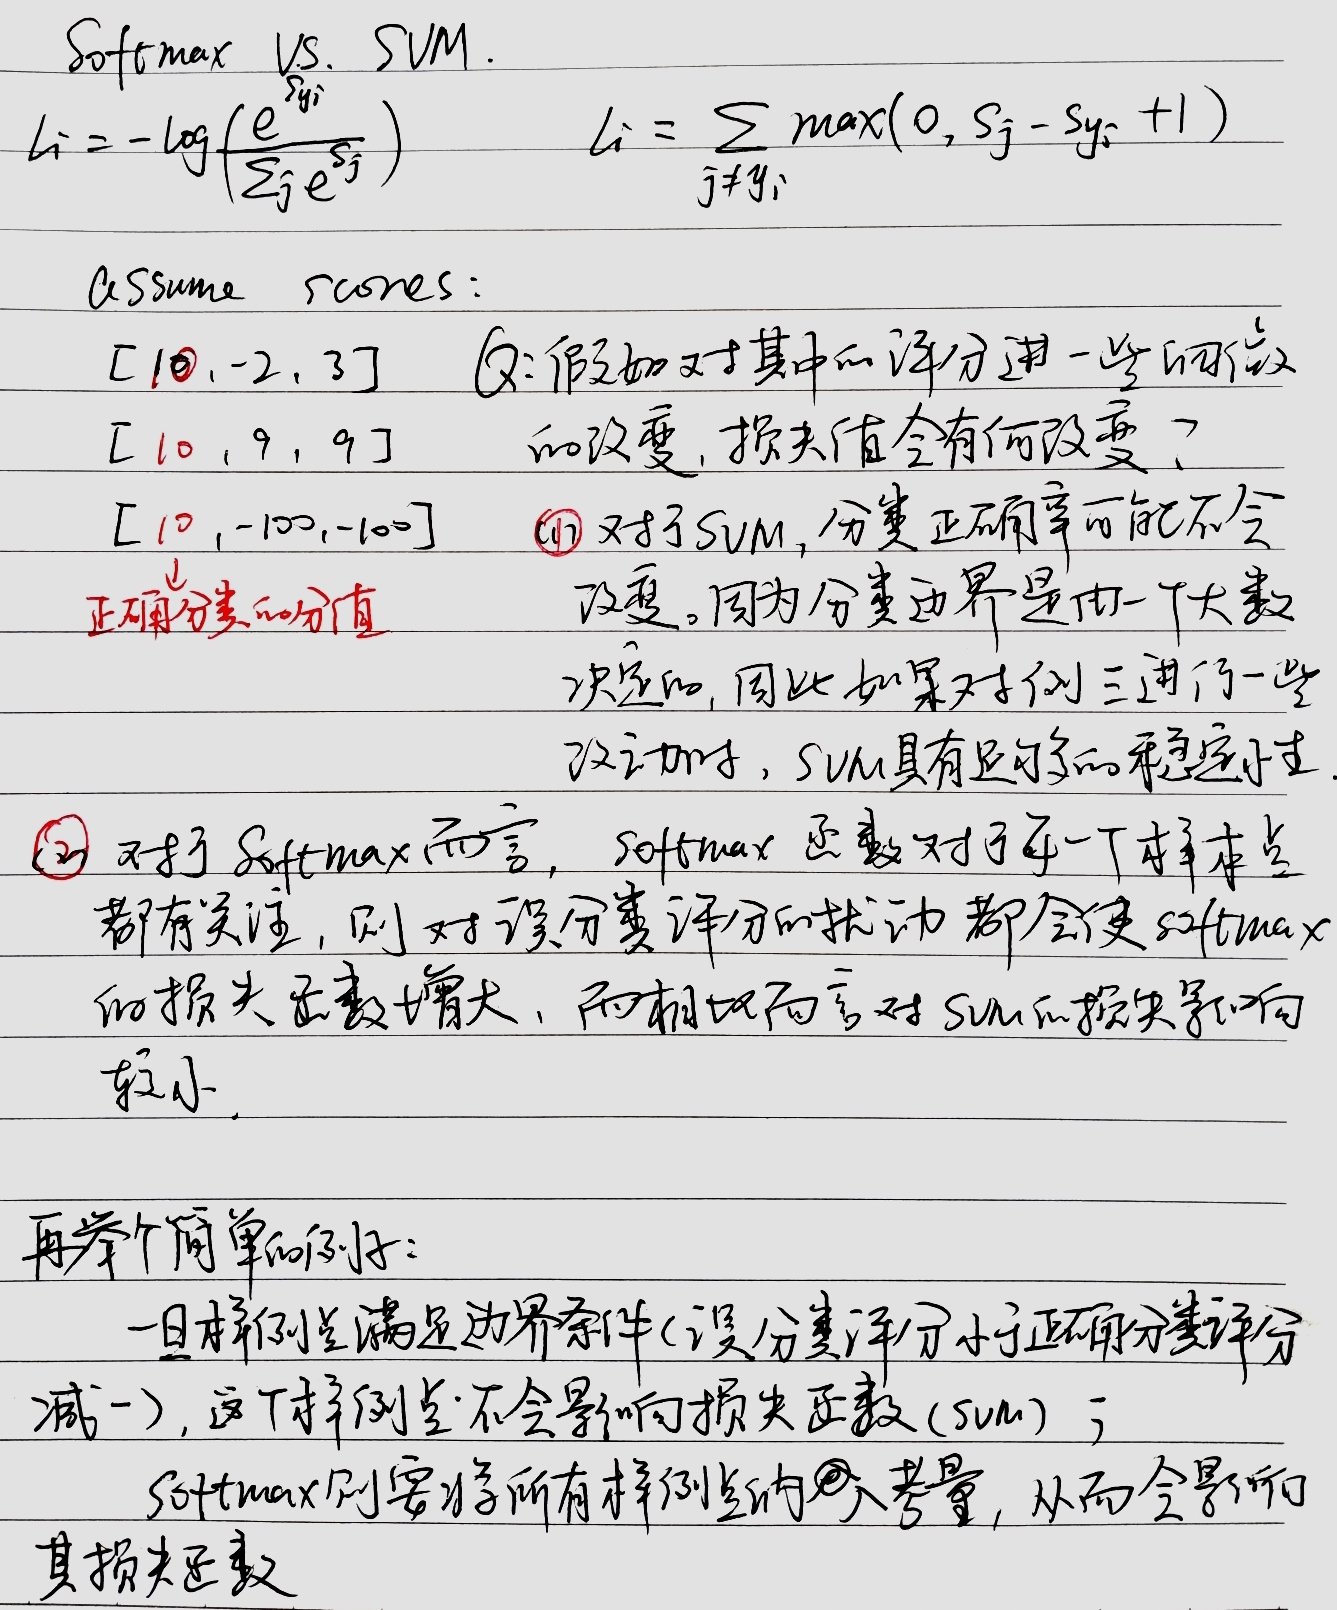 Softmax VS. SVM.
Li = -log(e^{s_{yi}} / Σ_j e^{s_j})    Li = Σ_{j≠yi} max(0, Sj - Syi + 1)
assume scores:
[10, -2, 3]    Q: 假如对其中的评分进一些细微
[10, 9, 9]    的改变, 损失值会有何改变?
[10, -100, -100]    (1) 对于SVM, 分类正确率可能不会
正确分类的分值    改变。因为分类边界是由一个大数
决定的, 因此如果对例三进行一些
改动时, SVM具有足够的稳定性.
(2) 对于Softmax而言, softmax 函数对于每一个样本点
都有关注, 则对误分类评分的扰动都会使softmax
的损失函数增大, 而相比而言对SVM的损失影响
较小.
再举个简单的例子:
一旦样例点满足边界条件(误分类评分小于正确分类评分
减一), 这个样例点不会影响损失函数(SVM);
Softmax则要将所有样例点纳入考量, 从而会影响
其损失函数